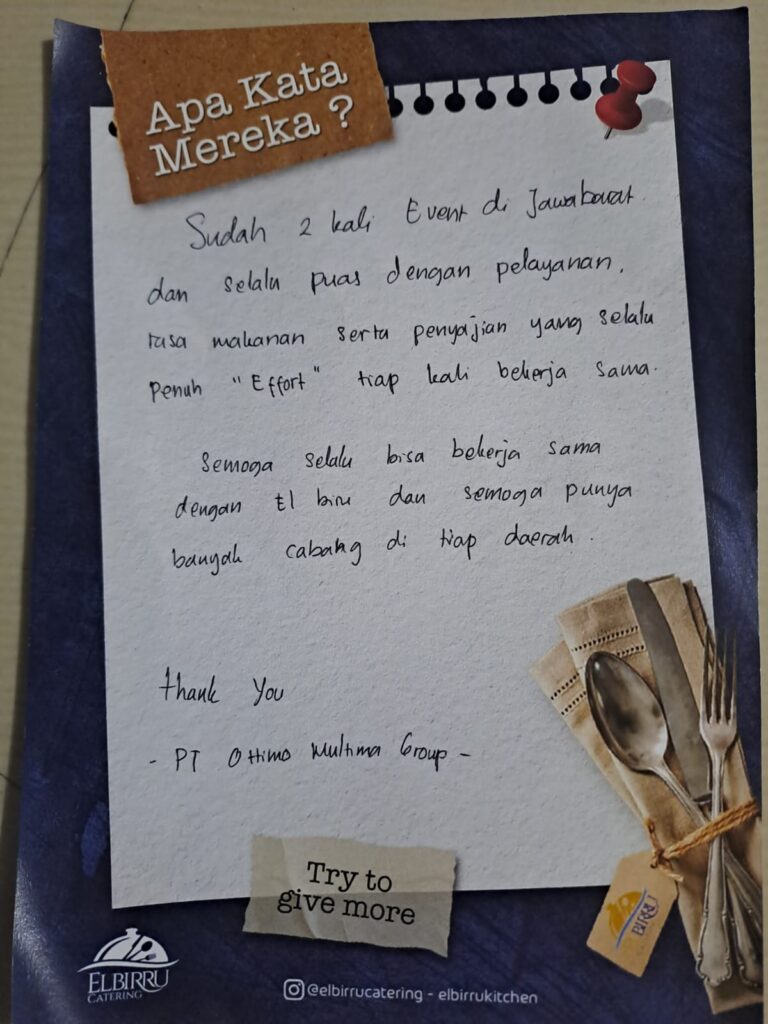 Apa Kata
Mereka ?
Sudah 2 kali Event di Jawabarat.
dan selalu puas dengan pelayanan,
rasa makanan serta penyajian yang selalu
penuh "Effort" tiap kali bekerja sama.
Semoga selalu bisa bekerja sama
dengan El biru dan semoga punya
banyak cabang di tiap daerah.
Thank You
- PT Ottimo Multima Group -
Try to
give more
BIRRU
ELBIRRU
CATERING
@elbirrucatering - elbirrukitchen